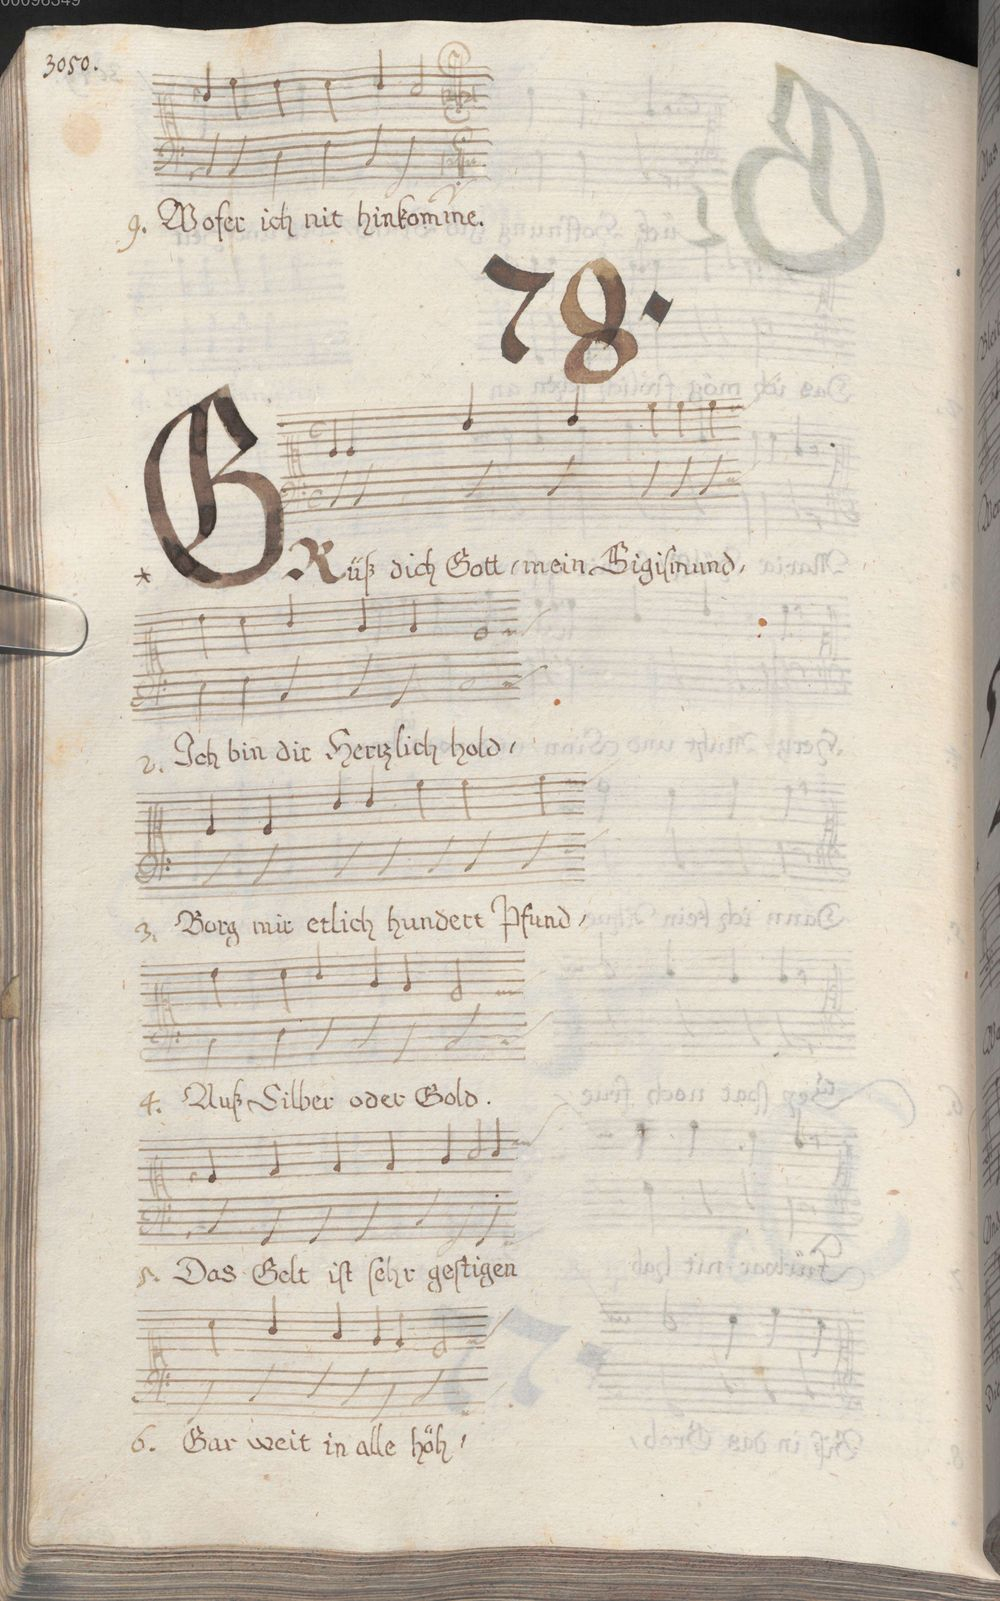 3050.
9. Wofer ich nit hinkom̄e.
78.
* GRüß dich Gott, mein Sigismund,
2. Ich bin dir Hertzlich hold,
3. Borg mir etlich hundert Pfund,
4. Auß Silber oder Gold.
5. Das Gelt ist sehr gestigen
6. Gar weit in alle höh,